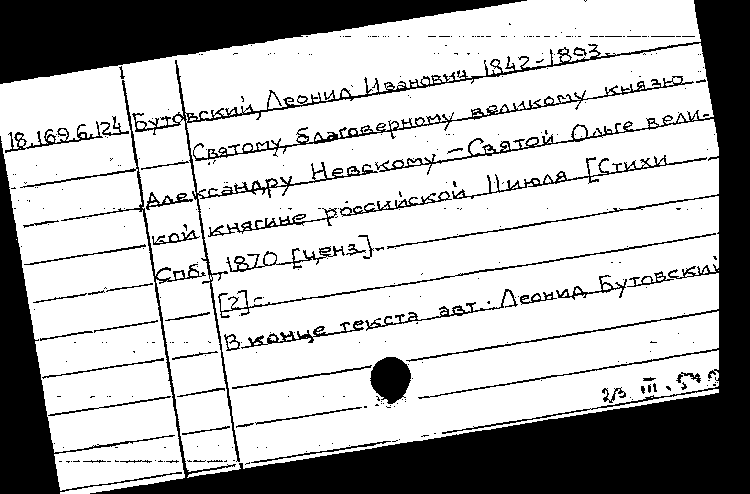 18.169.6.124 Бутовский, Леонид Иванович, 1842-1893.
Святому, благоверному великому князю
Александру Невскому. – Святой Ольге вели-
кой княгине российской. 11 июля [Стихи
Спб.], 1870 [ценз].
[2] с.
В конце текста авт.: Леонид Бутовский
2/3 III. 54